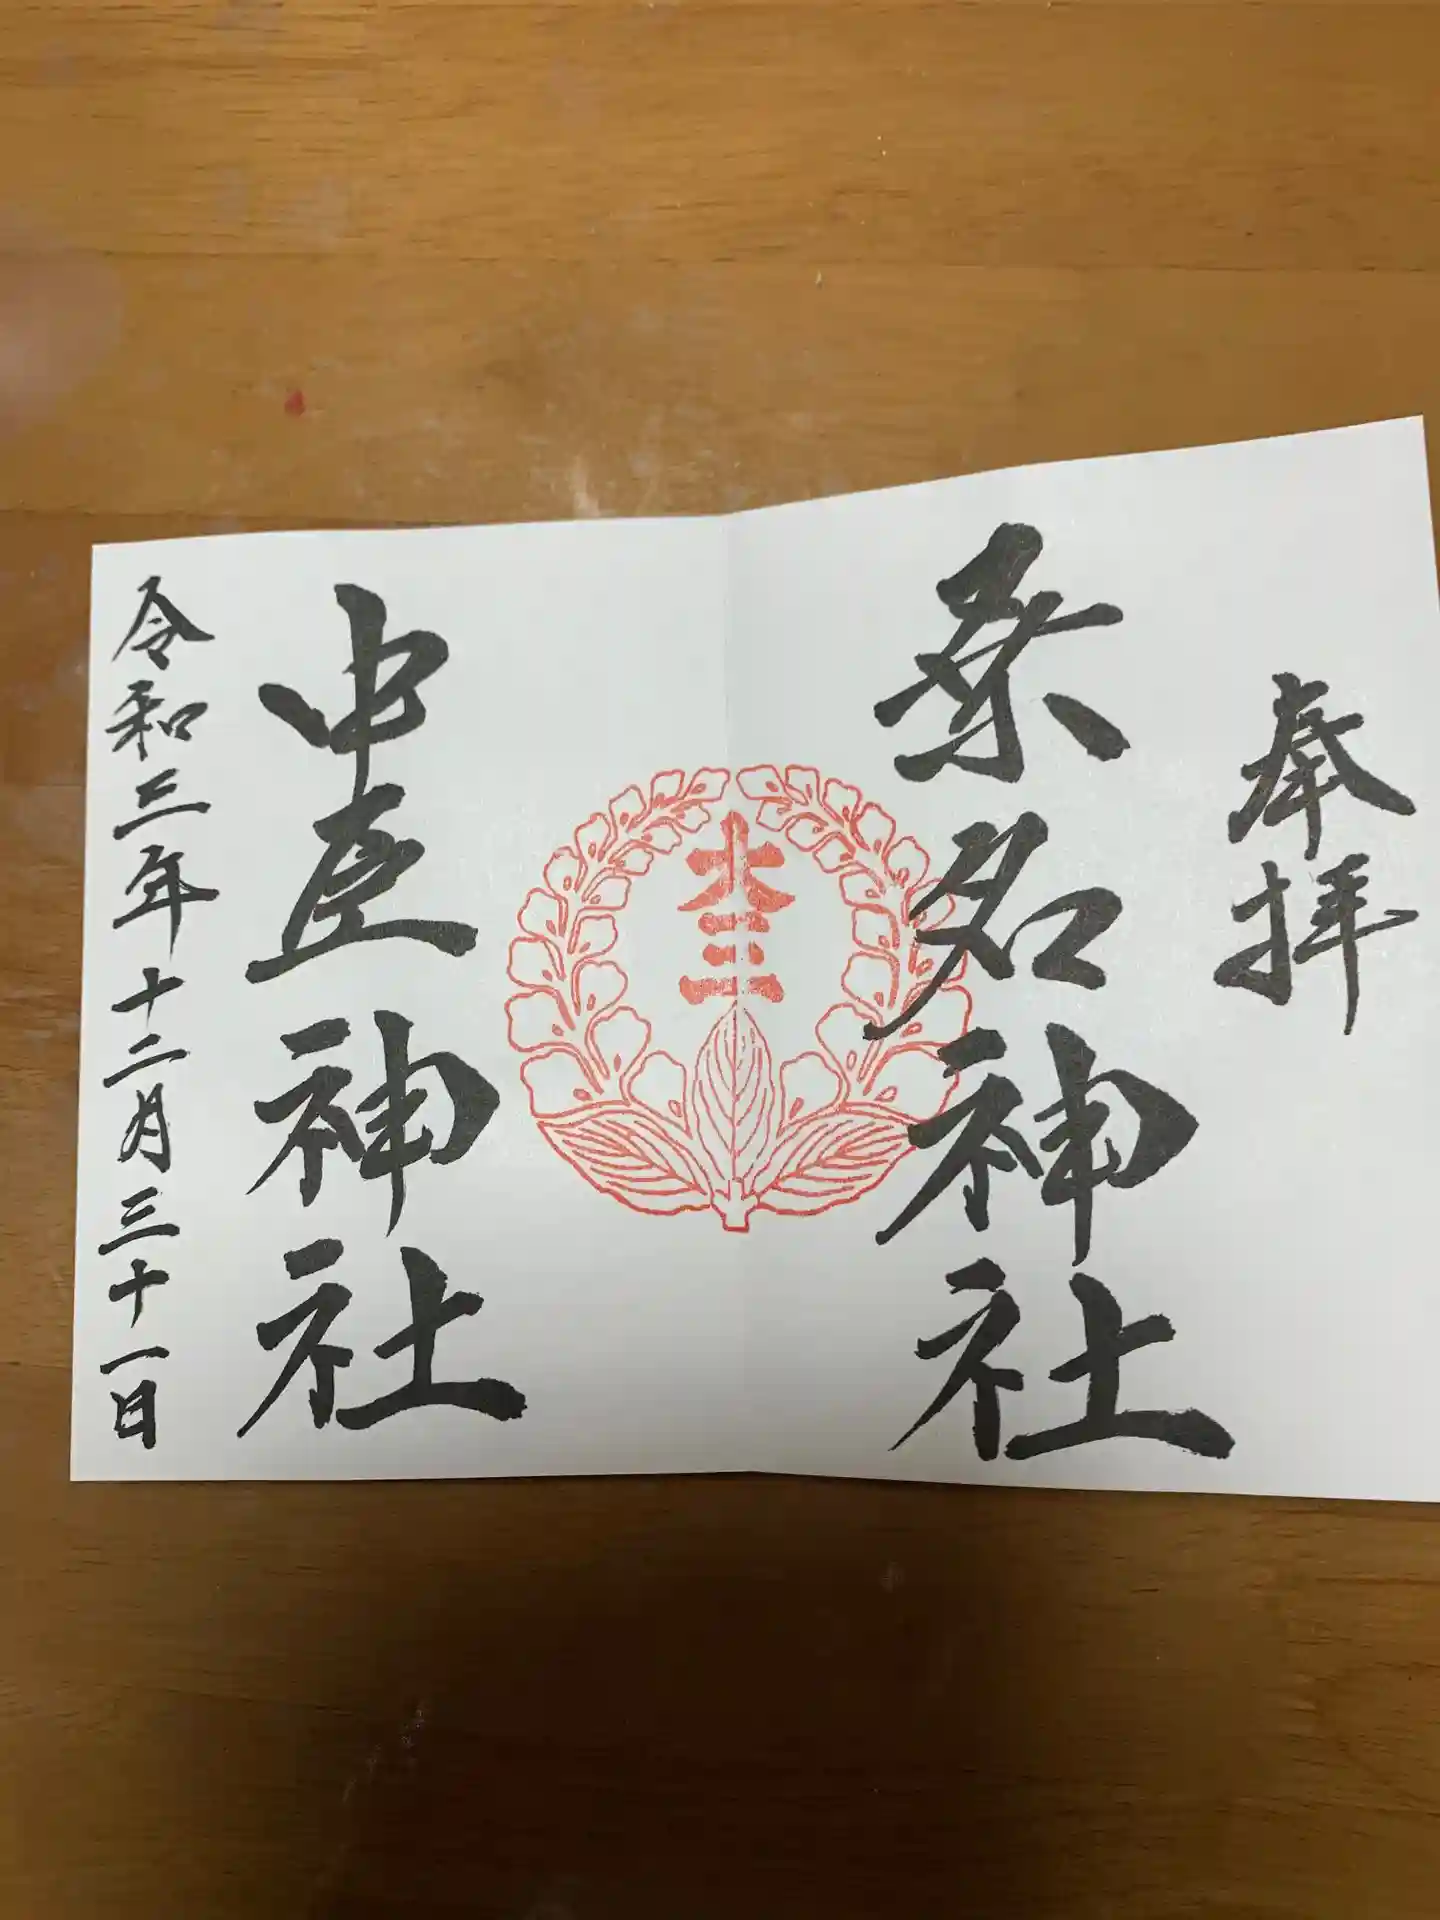 奉拝
桑名神社
大三三
中臣神社
令和三年十二月三十一日